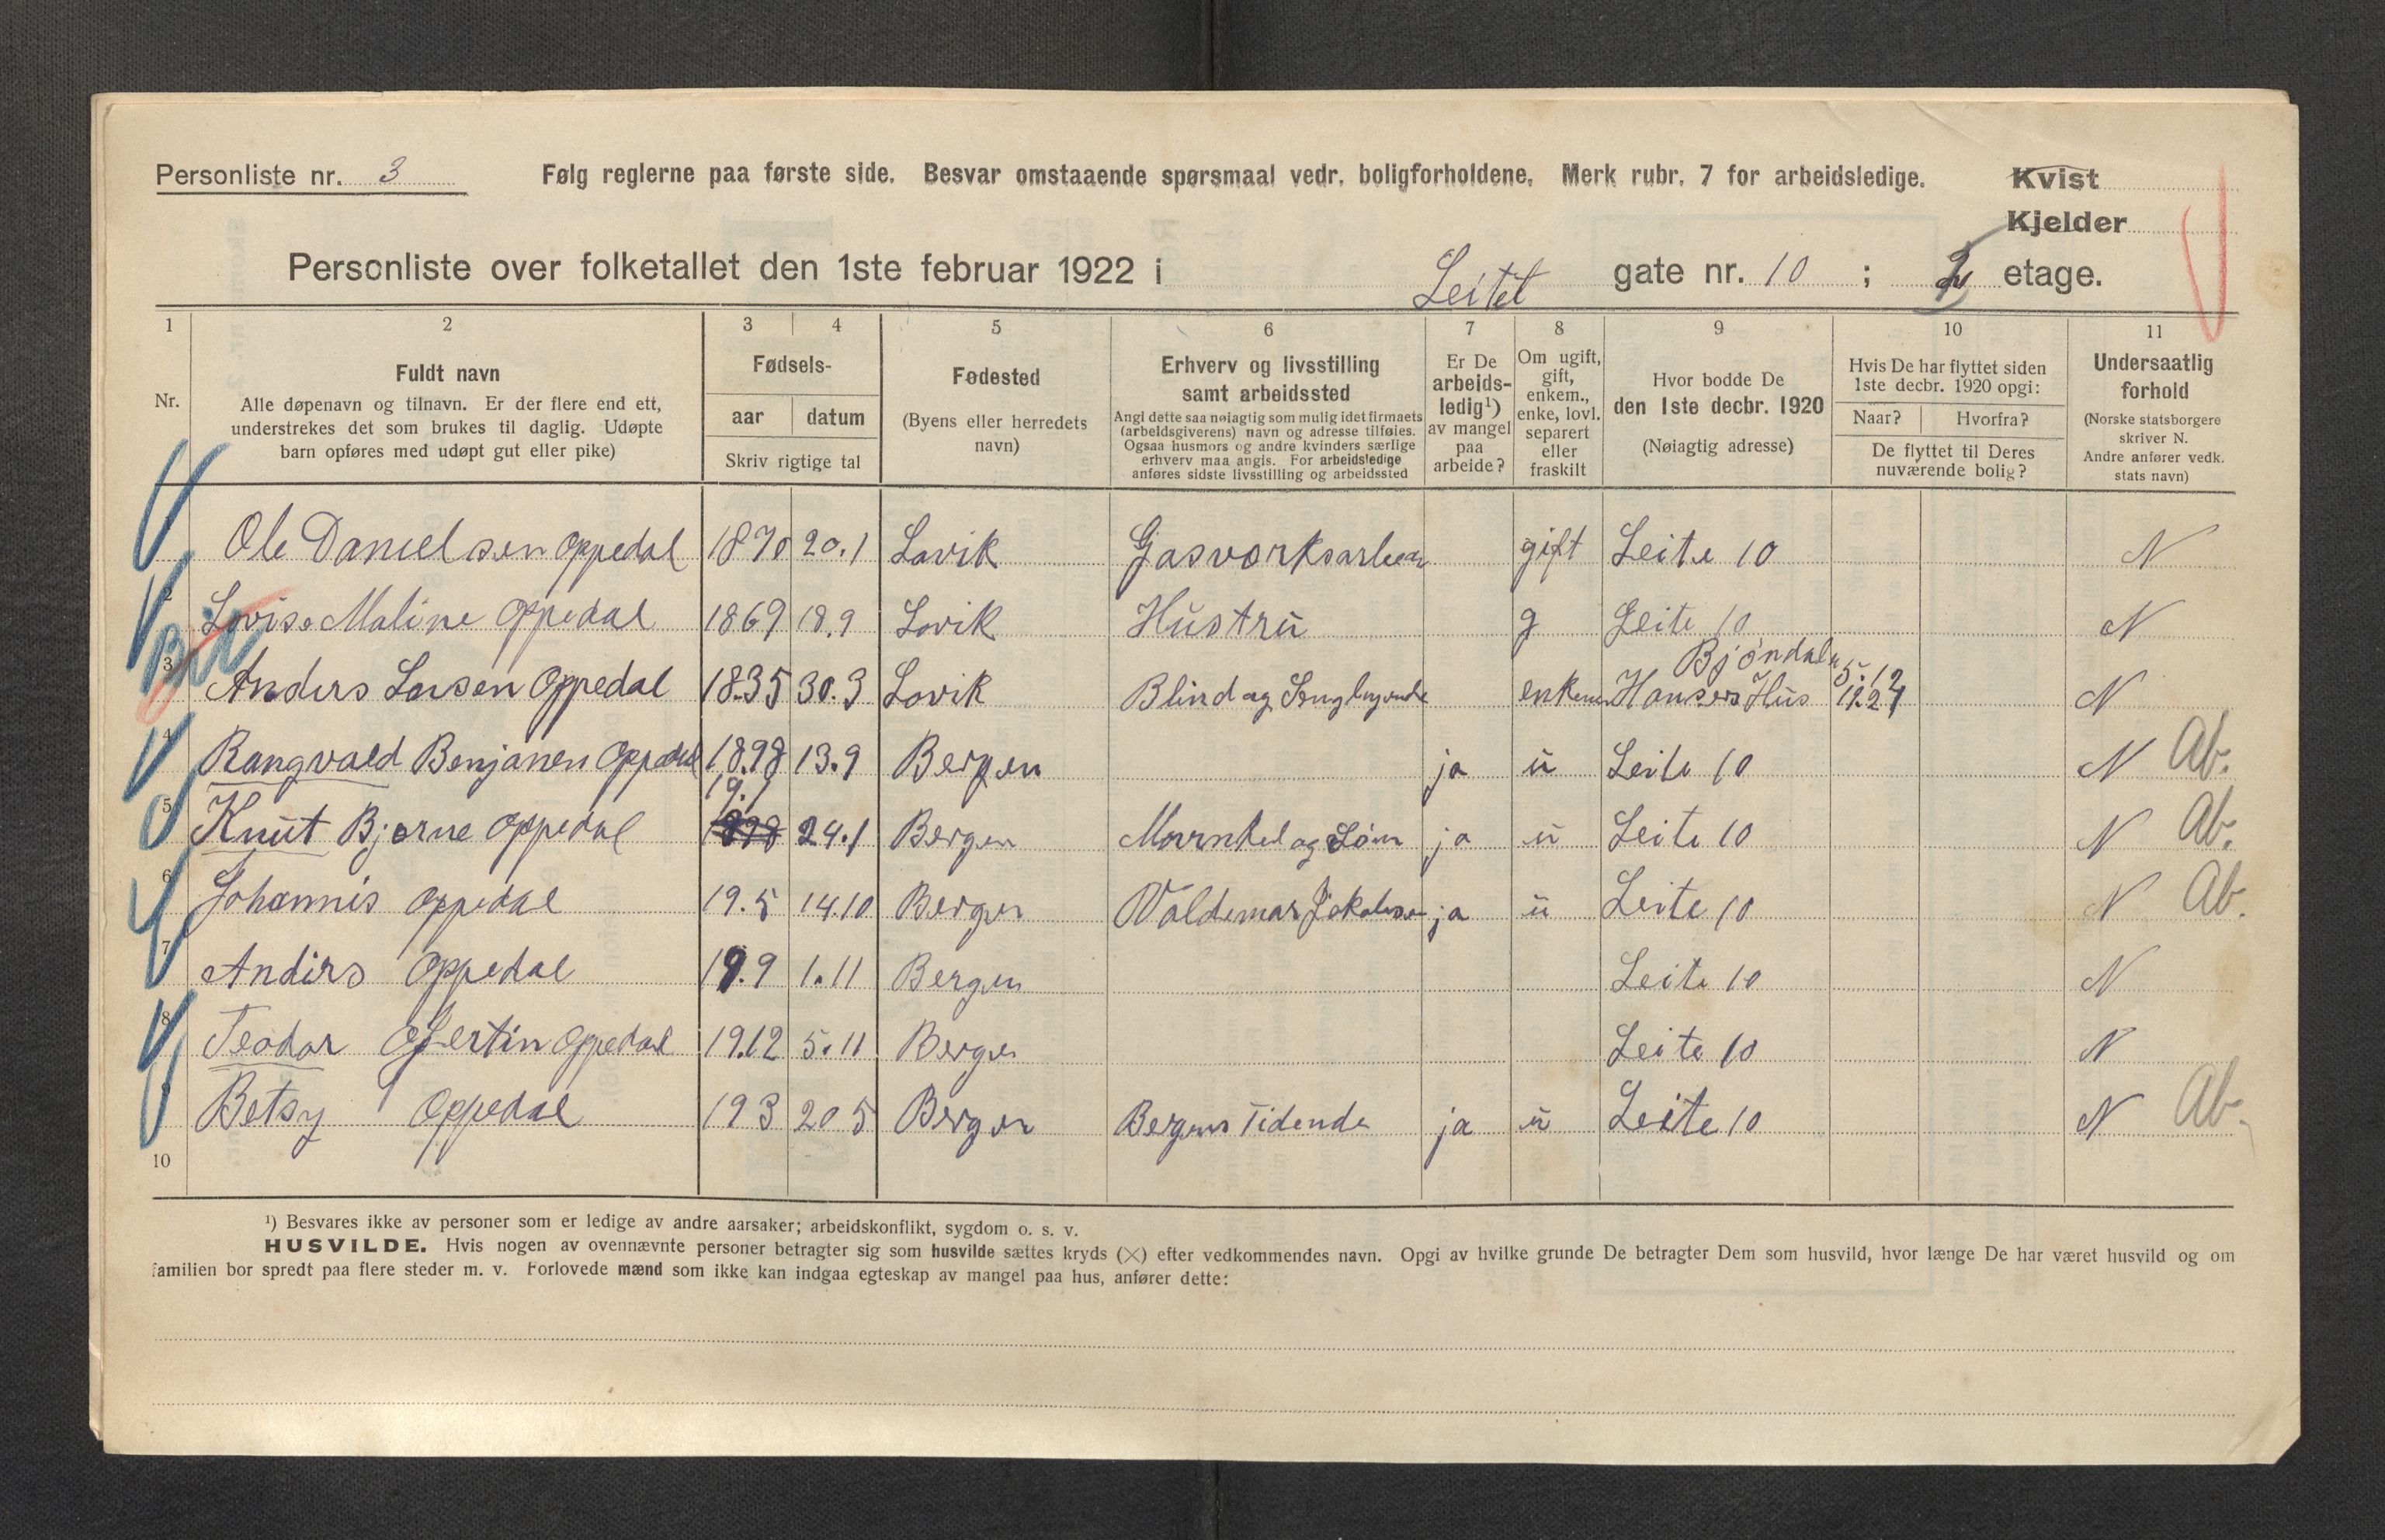 Personliste nr. 3 Følg reglerne paa første side. Besvar omstaaende spørsmaal vedr. boligforholdene. Merk rubr. 7 for arbeidsledige. Kvist
Kjelder
Personliste over folketallet den 1ste februar 1922 i Leitet gate nr. 10 ; 2 etage.
1 2 3 4 5 6 7 8 9 10 11
Nr.
Fuldt navn
Alle døpenavn og tilnavn. Er der flere end ett,
understrekes det som brukes til daglig. Udøpte
barn opføres med udøpt gut eller pike)
Fødsels-
aar datum
Skriv rigtige tal
Fødested
(Byens eller herredets
navn)
Erhverv og livsstilling
samt arbeidssted
Angi dette saa nøiagtig som mulig idet firmaets
(arbeidsgiverens) navn og adresse tilføies.
Ogsaa husmors og andre kvinders særlige
erhverv maa angis. For arbeidsledige
anføres sidste livsstilling og arbeidssted
Er De
arbeids-
ledig¹)
av mangel
paa
arbeide?
Om ugift,
gift,
enkem.,
enke, lovl.
separert
eller
fraskilt
Hvor bodde De
den 1ste decbr. 1920
(Nøiagtig adresse)
Hvis De har flyttet siden
1ste decbr. 1920 opgi:
Naar? Hvorfra?
De flyttet til Deres
nuværende bolig?
Undersaatlig
forhold
(Norske statsborgere
skriver N.
Andre anfører vedk.
stats navn)
Ole Danielsen Oppedal 1870 20.1 Lavik Gasvorksarbear gift Leite 10 N
2 Lovise Maline Oppedal 1869 18.9 Lovik Hustru g Leite 10 N
3 Anders Larsen Oppedal 1835 30.3 Lovik Blind og enkem Bjøndale Hansens Hus 5.12 N
4 Rangvald Benjanen Oppedal 1898 13.9 Bergen ja u Leite 10 N Ab.
5 Knut Bjarne Oppedal 19.1 1898 24.1 Bergen og Søn ja u Leite 10 N Ab.
6 Johannis Oppedal 19.5 14.10 Bergen Valdemar Jekobsen ja u Leite 10 N Ab.
7 Anders Oppedal 19.9 1.11 Bergen Leite 10 N
8 Teodor Oppedal 19.12 5.11 Bergen Leite 10 N
9 Betsy Oppedal 19 3 20 5 Bergen Bergens Tidende ja u Leite 10 N Ab.
10
¹) Besvares ikke av personer som er ledige av andre aarsaker; arbeidskonflikt, sygdom o. s. v.
HUSVILDE. Hvis nogen av ovennævnte personer betragter sig som husvilde sættes kryds (×) efter vedkommendes navn. Opgi av hvilke grunde De betragter Dem som husvild, hvor længe De har været husvild og om
familien bor spredt paa flere steder m. v. Forlovede mænd som ikke kan indgaa egteskap av mangel paa hus, anfører dette: